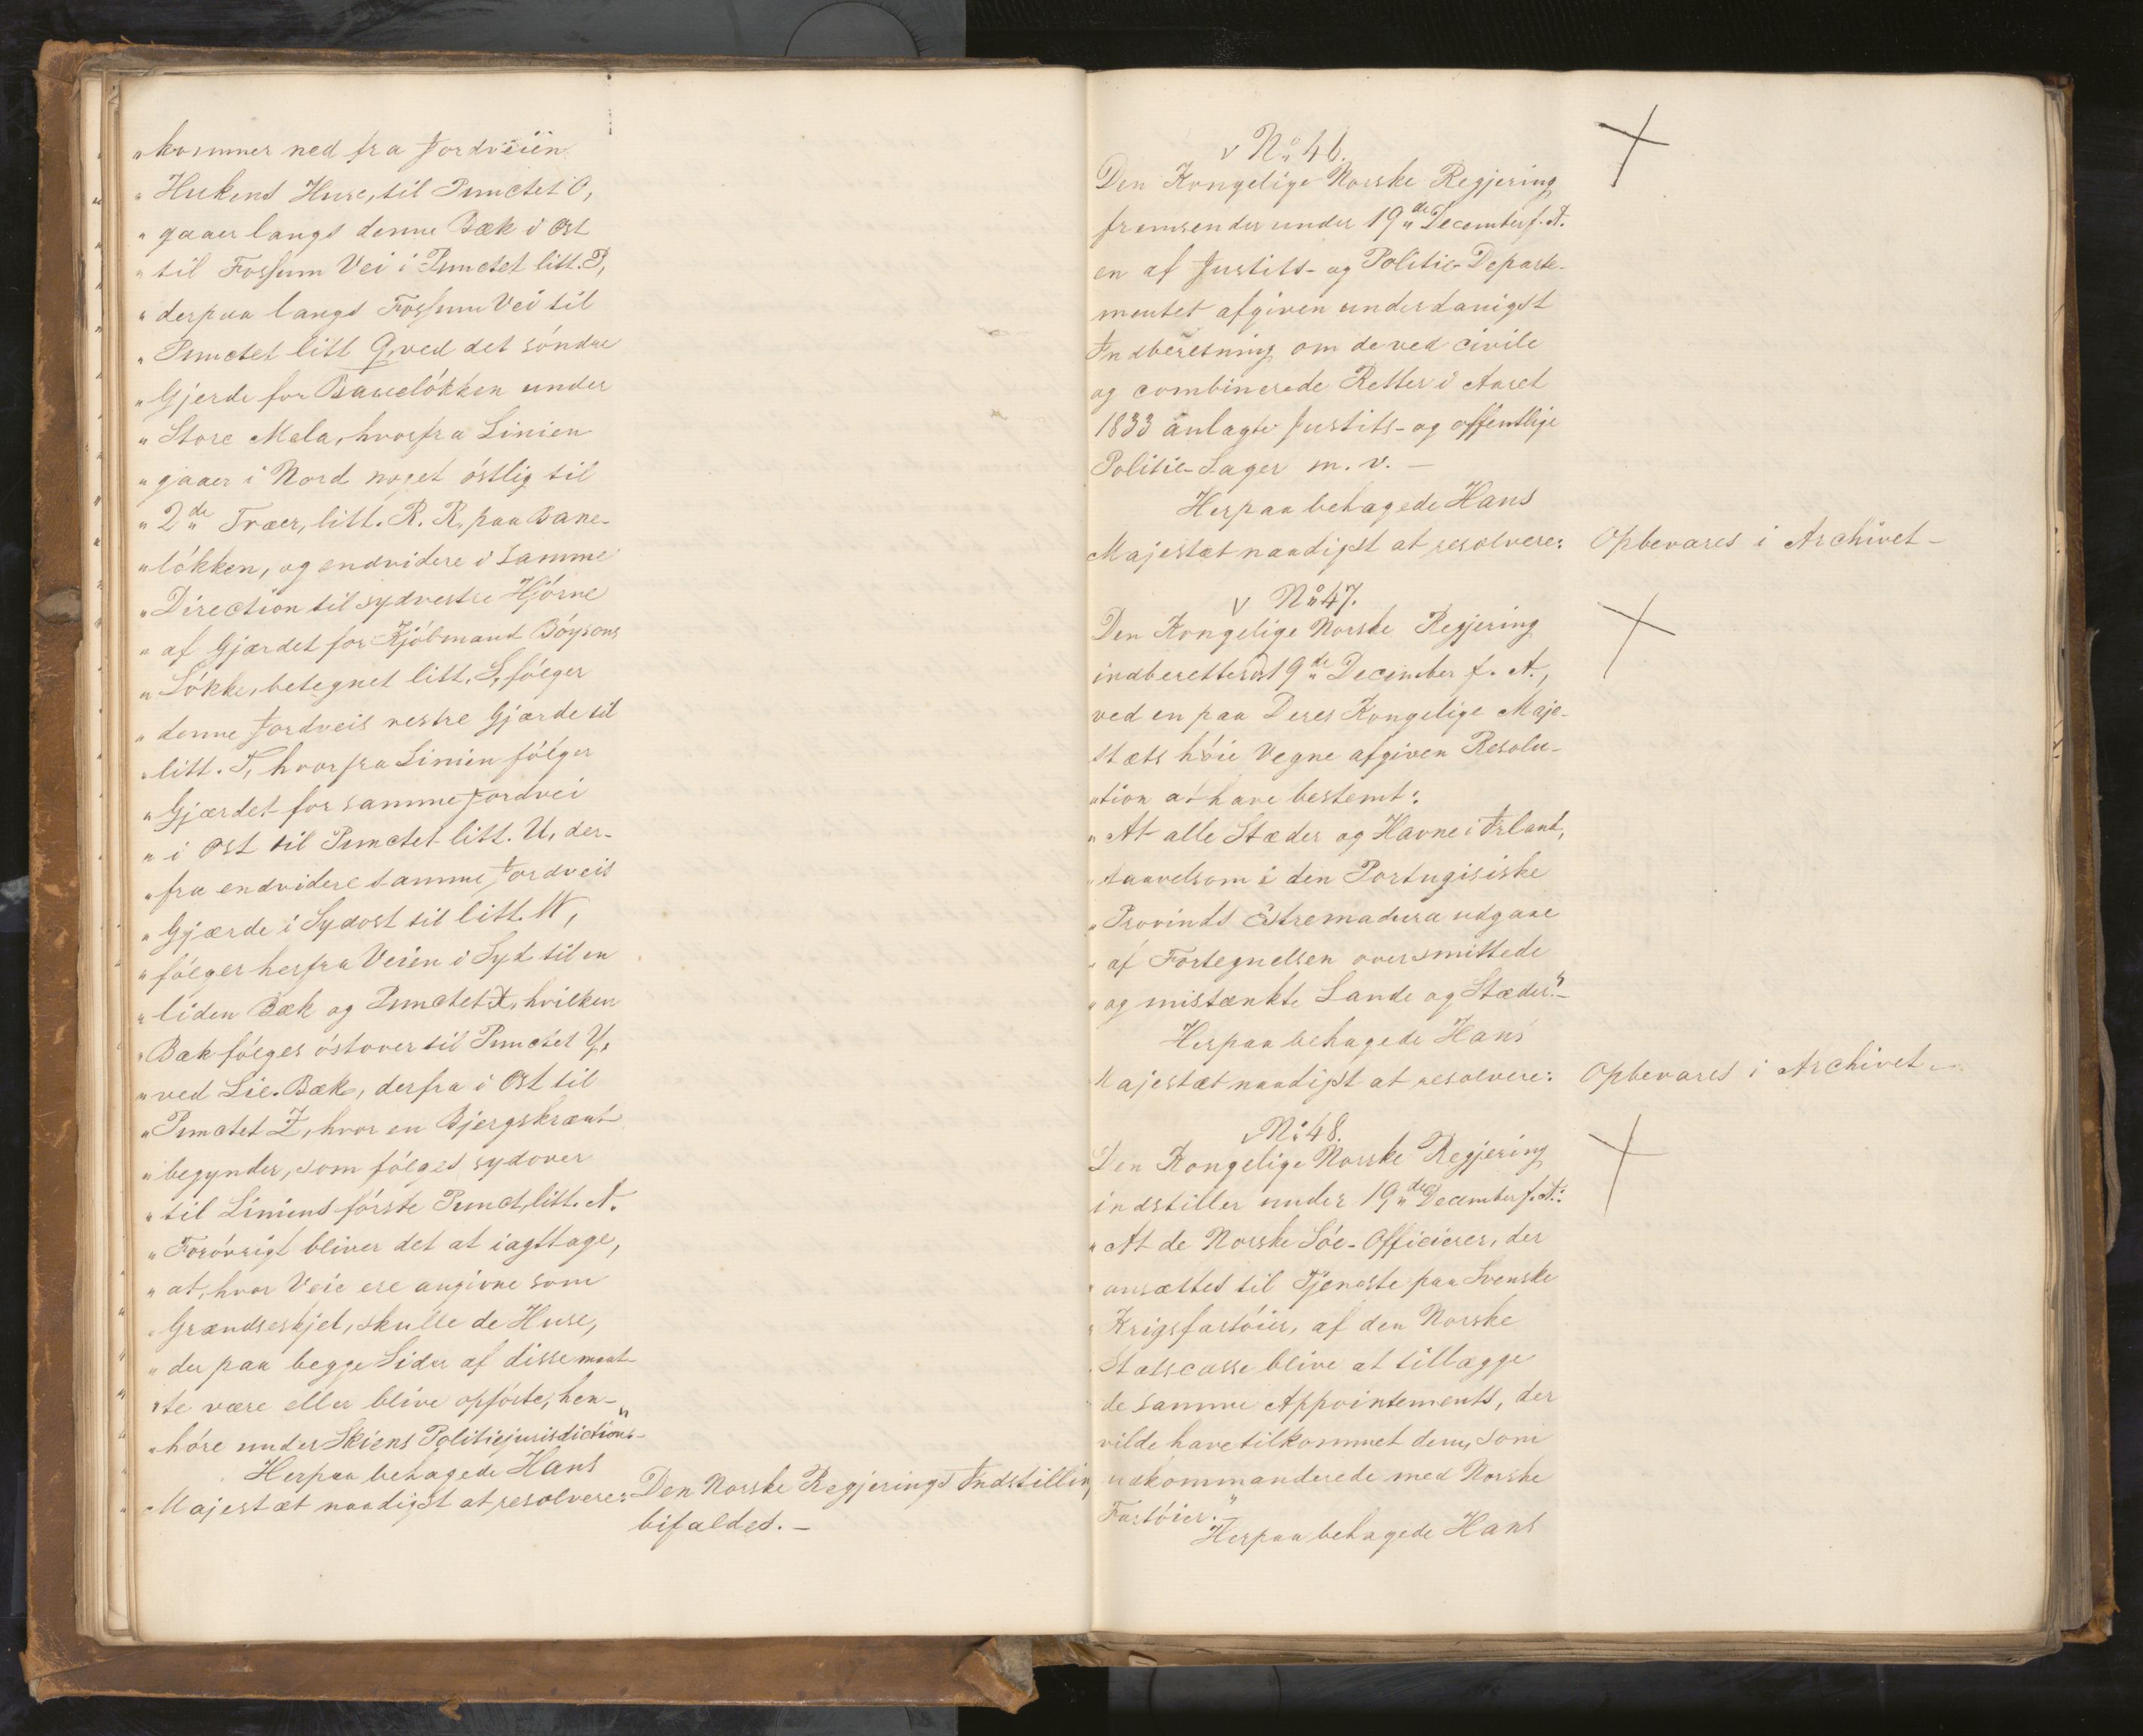 "kommer ned fra Jordveien
"Hukens Huse, til Punctet O,
"gaaer langs denne Bæk i Ost
"til Fossum Vei i Punctet litt. P,
"derpaa langs Fossum Vei til
"Punctet litt Q, ved det söndre
"Gjerde for Baneløkken under
"Store Mela, hvorfra Linien
"gaaer i Nord noget östlig til
"2de Træer, litt. R. R. paa Bane-
"lökken, og endvidere i samme
"Direction til sydvestre Hjörne
"af Gjærdet for Kjöbmand Böysons
"Lökke, betegnet litt. S, fölger
"denne Jordveis vestre Gjærde til
"litt. T, hvorfra Linien fölger
"Gjærdet for samme Jordvei
"i Ost til Punctet litt. U, der-
"fra endvidere samme Jordveis
"Gjærde i Sydost til litt. W,
"fölger herfra Veien i Syd til en
"liden Bæk og Punctet X, hvilken
"Bæk fölges östover til Punctet Y,
"ved Lie-Bæk, derfra i Ost til
"Punctet Z, hvor en Bjergskrænt
"begynder, som fölges sydover
"til Liniens förste Punct, litt. A.
"Forövrigt bliver det at iagttage,
"at, hvor Veie ere angivne som
"Grændseskjel, skulle de Huse,
"der paa begge Sider af disse maat-
"te være eller blive opförte, hen-
"höre under Skiens Politiejurisdiction"-
Herpaa behagede Hans
Majestæt naadigst at resolvere: Den Norske Regjerings Indstilling
bifaldes.-
v No 46.
Den Kongelige Norske Regjering
fremsender under 19de December f. A.
en af Justits- og Politie-Departe-
mentet afgiven underdanigst
Indberetning om de ved civile
og combinerede Retter i Aaret
1833 anlagte Justits- og offentlige
Politie-Sager m. v. -
Herpaa behagede Hans
Majestæt naadigst at resolvere: Opbevares i Archivet-
v No 47.
Den Kongelige Norske Regjering
indberetter 19de December f. A.,
ved en paa Deres Kongelige Maje-
stæts höie Vegne afgiven Resolu-
tion at have bestemt:
"At alle Stæder og Havne i Irland,
"saavelsom i den Portugisiske
"Provinds Estremadura udgaae
"af Fortegnelsen over smittede
"og mistænkte Lande og Stæder."-
Herpaa behagede Hans
Majestæt naadigst at resolvere: Opbevares i Archivet-
v No 48.
Den Kongelige Norske Regjering
indstiller under 19de December f. A.:
"At de Norske Söe-Officierer, der
"ansættes til Tjeneste paa Svenske
"Krigsfartöier, af den Norske
Statscasse blive at tillægge
de samme Appointements, der
vilde have tilkommet dem, som
udkommanderede med Norske
Fartöier."-
Herpaa behagede Hans